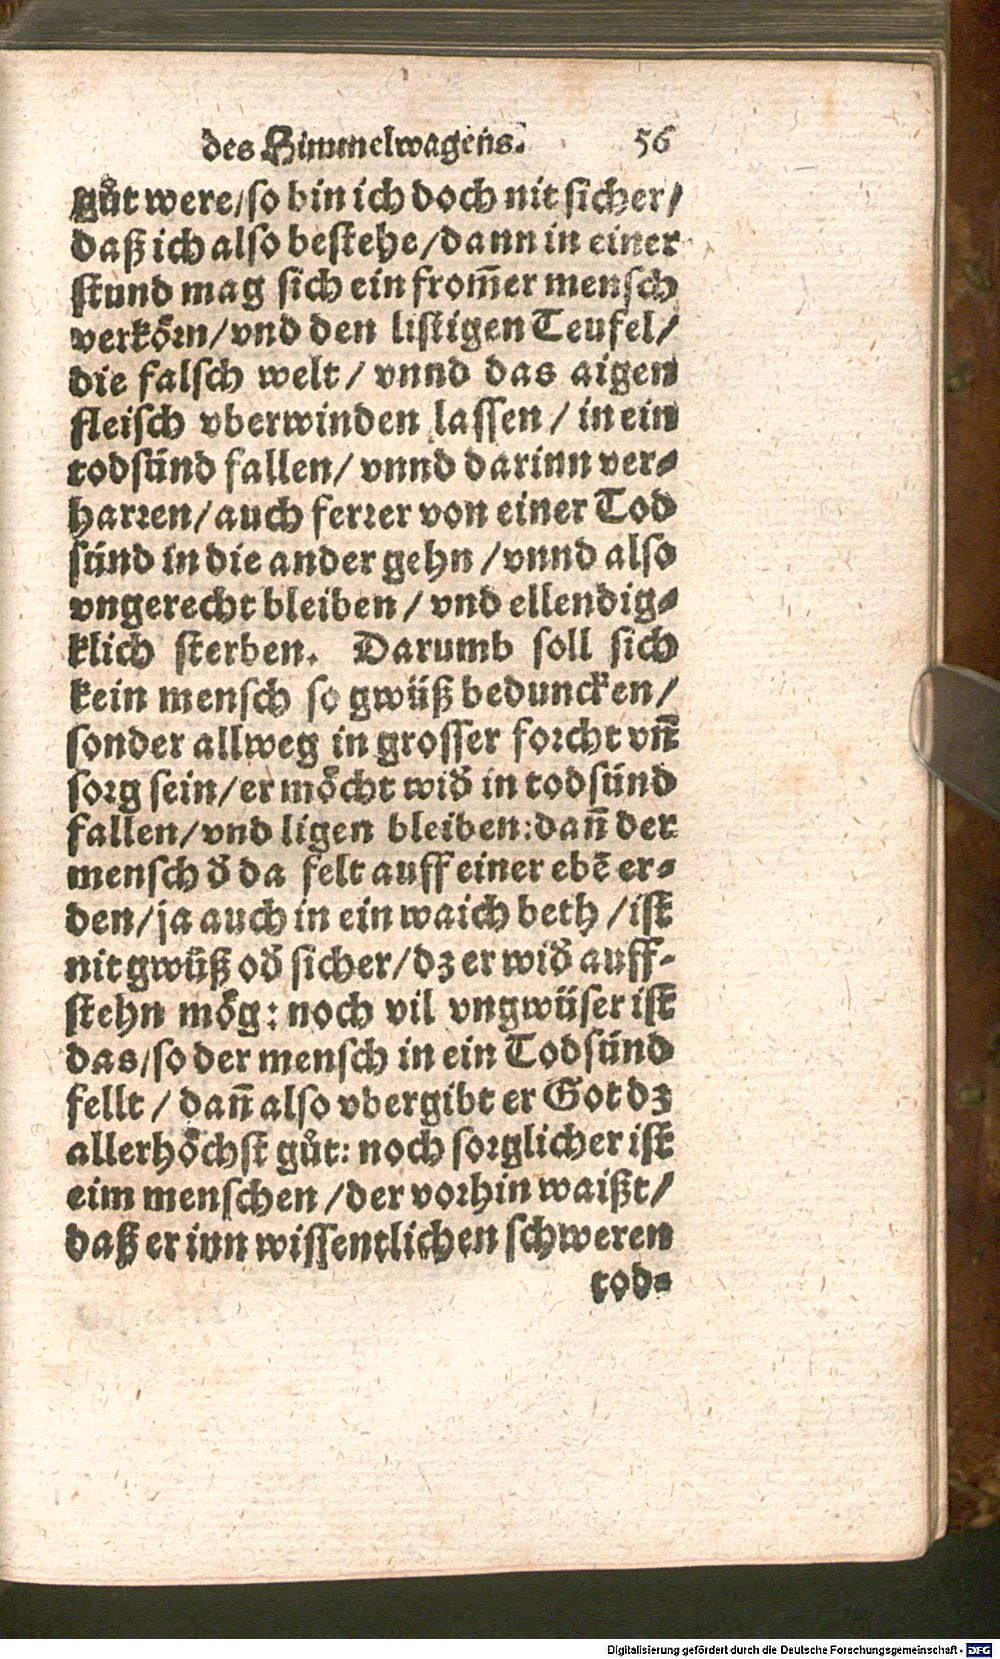 des Himmelwagens. 56
gůt were/so bin ich doch nit sicher/
daß ich also bestehe/dann in einer
stund mag sich ein from̃er mensch
verkörn/vnd den listigen Teufel/
die falsch welt/ vnnd das aigen
fleisch vberwinden lassen/ in ein
todsünd fallen/ vnnd darinn ver-
harren/auch ferrer von einer Tod
sünd in die ander gehn /vnnd also
vngerecht bleiben/ vnd ellendig-
klich sterben. Darumb soll sich
kein mensch so gwüß beduncken/
sonder allweg in grosser forcht vñ
sorg sein/er möcht wid̃ in todsünd
fallen/vnd ligen bleiben:dañ der
mensch d̃ da felt auff einer ebē er-
den/ja auch in ein waich beth /ist
nit gwüß od̃ sicher/dz er wid̃ auff-
stehn mög: noch vil vngwüser ist
das/so der mensch in ein Todsünd
fellt / dañ also vbergibt er Got dz
allerhöchst gůt: noch sorglicher ist
eim menschen /der vorhin waißt/
daß er inn wissentlichen schweren
tod-
Digitalisierung gefördert durch die Deutsche Forschungsgemeinschaft - DFG